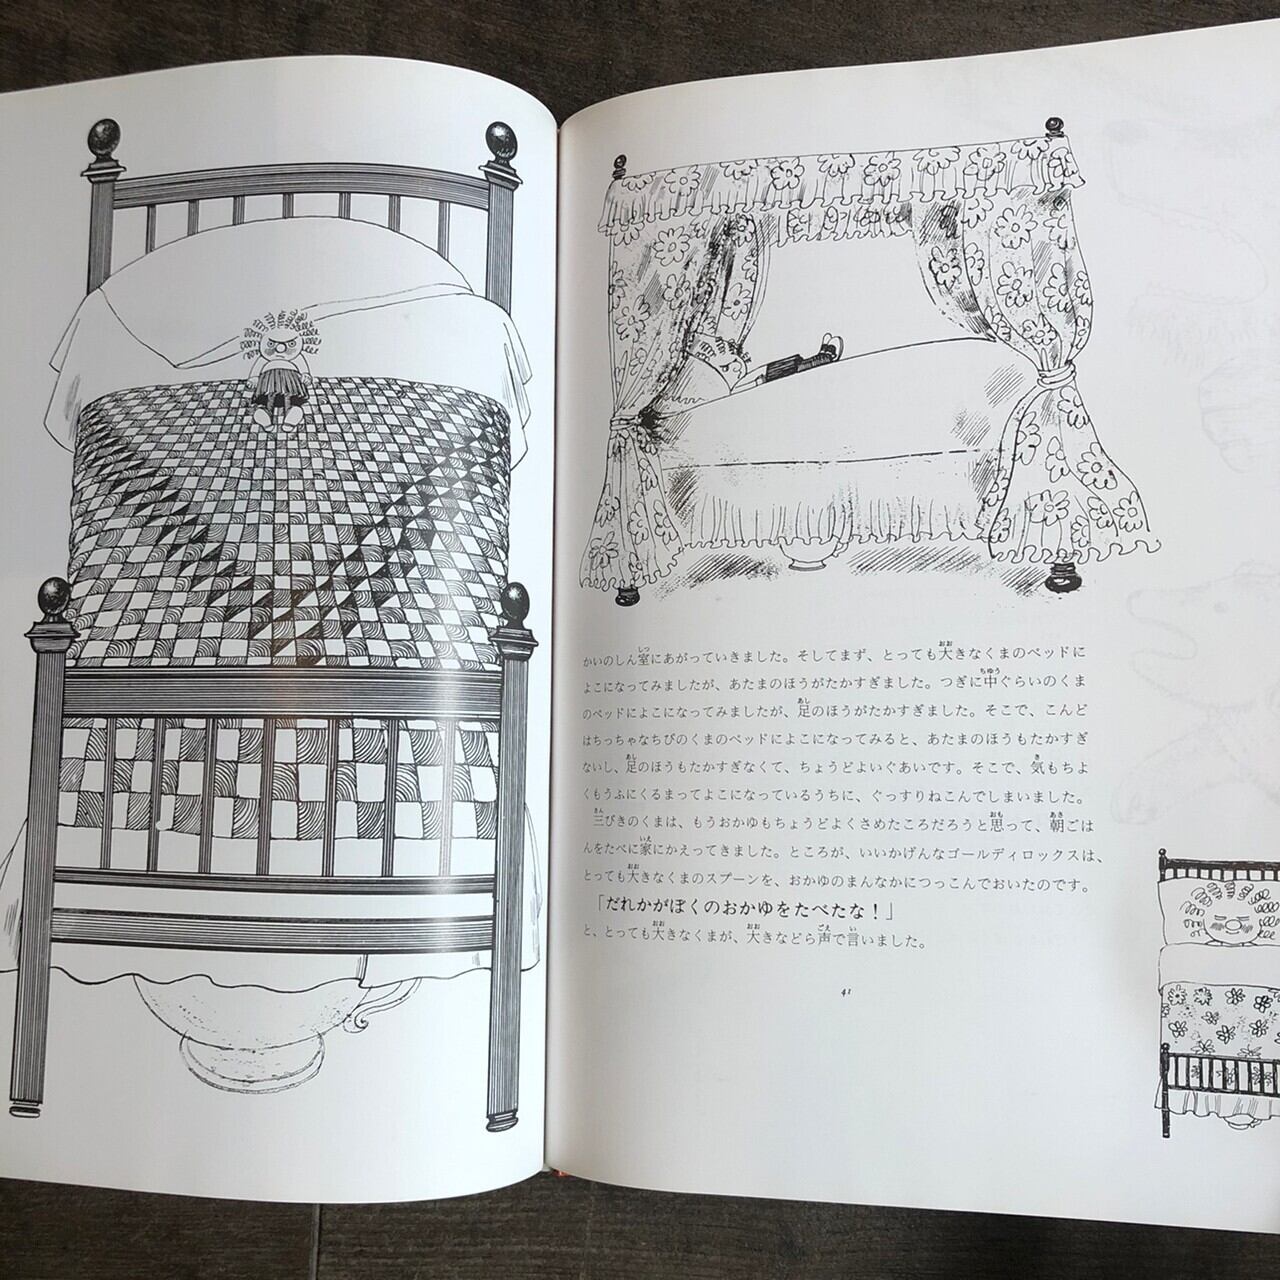 かいのしん室にあがっていきました。そしてまず、とっても大きなくまのベッドに
よこになってみましたが、あたまのほうがたかすぎました。つぎに中ぐらいのくま
のベッドによこになってみましたが、足のほうがたかすぎました。そこで、こんど
はちっちゃなちびのくまのベッドによこになってみると、あたまのほうもたかすぎ
ないし、足のほうもたかすぎなくて、ちょうどよいぐあいです。そこで、気もちよ
くもうふにくるまってよこになっているうちに、ぐっすりねこんでしまいました。
三びきのくまは、もうおかゆもちょうどよくさめたころだろうと思って、朝ごは
んをたべに家にかえってきました。ところが、いいかげんなゴールディロックスは、
とっても大きなくまのスプーンを、おかゆのまんなかにつっこんでおいたのです。
「だれかがぼくのおかゆをたべたな！」
と、とっても大きなくまが、大きなどら声で言いました。
41